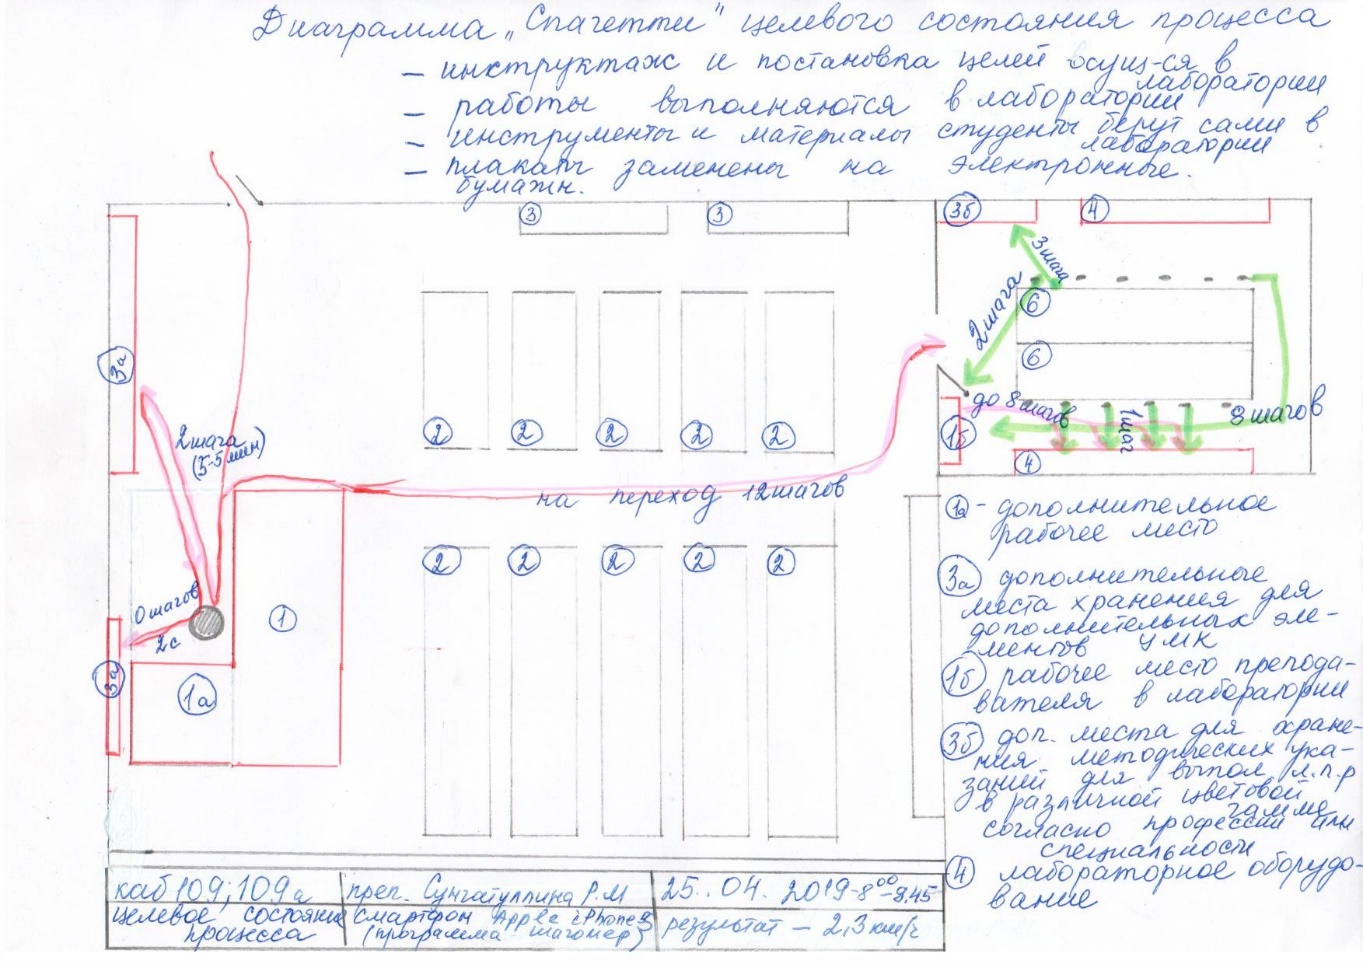 Диаграмма „Спагетти" целевого состояния процесса
– инструктаж и постановка целей осущ-ся в
лаборатории
– работы выполняются в лаборатории
– инструменты и материалы студенты берут сами в
лаборатории
– плакаты заменены на электронные.
бумажн.
3
3
3б
4
3 шага
2 шага
6
6
3а
2 шага
(5-5 мин)
2
2
2
2
2
до 8 шагов
1 шаг
8 шагов
1б
4
на переход 12 шагов
2
2
2
2
2
0 шагов
2с
1
3а
1а
1а - дополнительное
рабочее место
3а дополнительные
места хранения для
дополнительных эле-
ментов УМК
1б рабочее место препода-
вателя в лаборатории
3б доп. места для хране-
ния методических ука-
заний для выпол л.п.р
в различной цветовой
гамме
согласно профессии или
специальности
4 лабораторное оборудо-
вание
каб 109; 109а
преп. Сунгатуллина Р.М
25. 04. 2019 - 8 00 - 9.45
целевое состояние
процесса
смартфон Apple iPhone
(программа шагомер)
результат – 2,3 км/ч